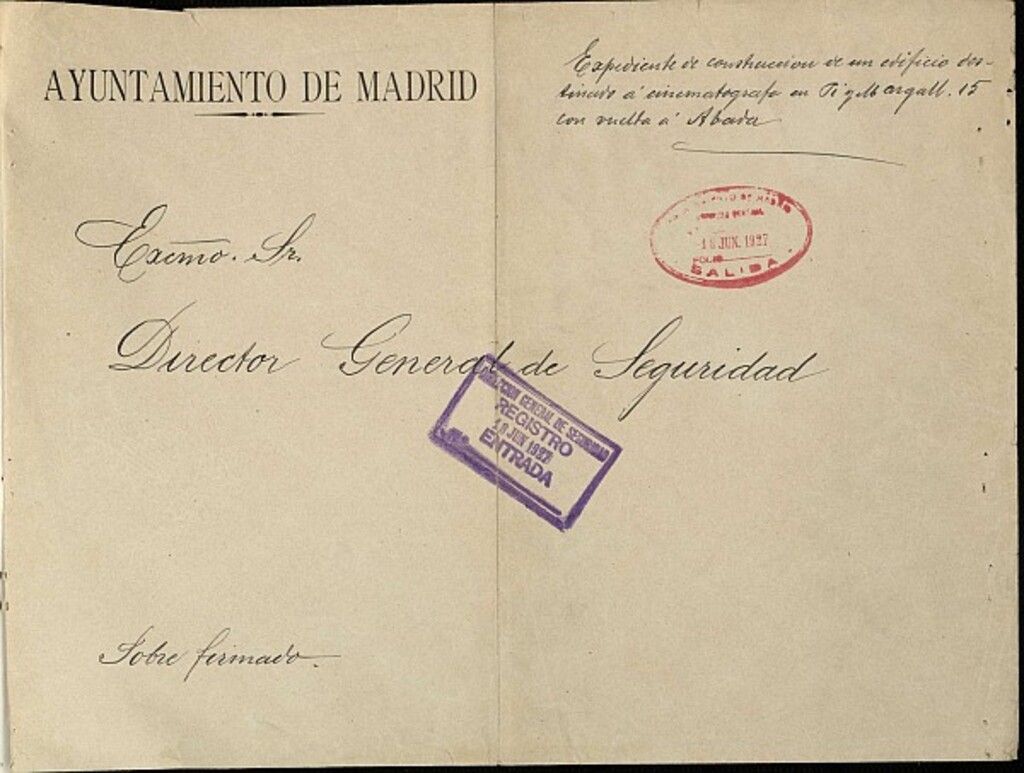 AYUNTAMIENTO DE MADRID
Expediente de construccion de un edificio des-
tinado á cinematografo en Pi y Margall. 15
con vuelta á Abada
SALIDA
Excmo. Sr.
Director General de Seguridad
DIRECCION GENERAL DE SEGURIDAD
REGISTRO
18 JUN 1927
ENTRADA
Sobre firmado.